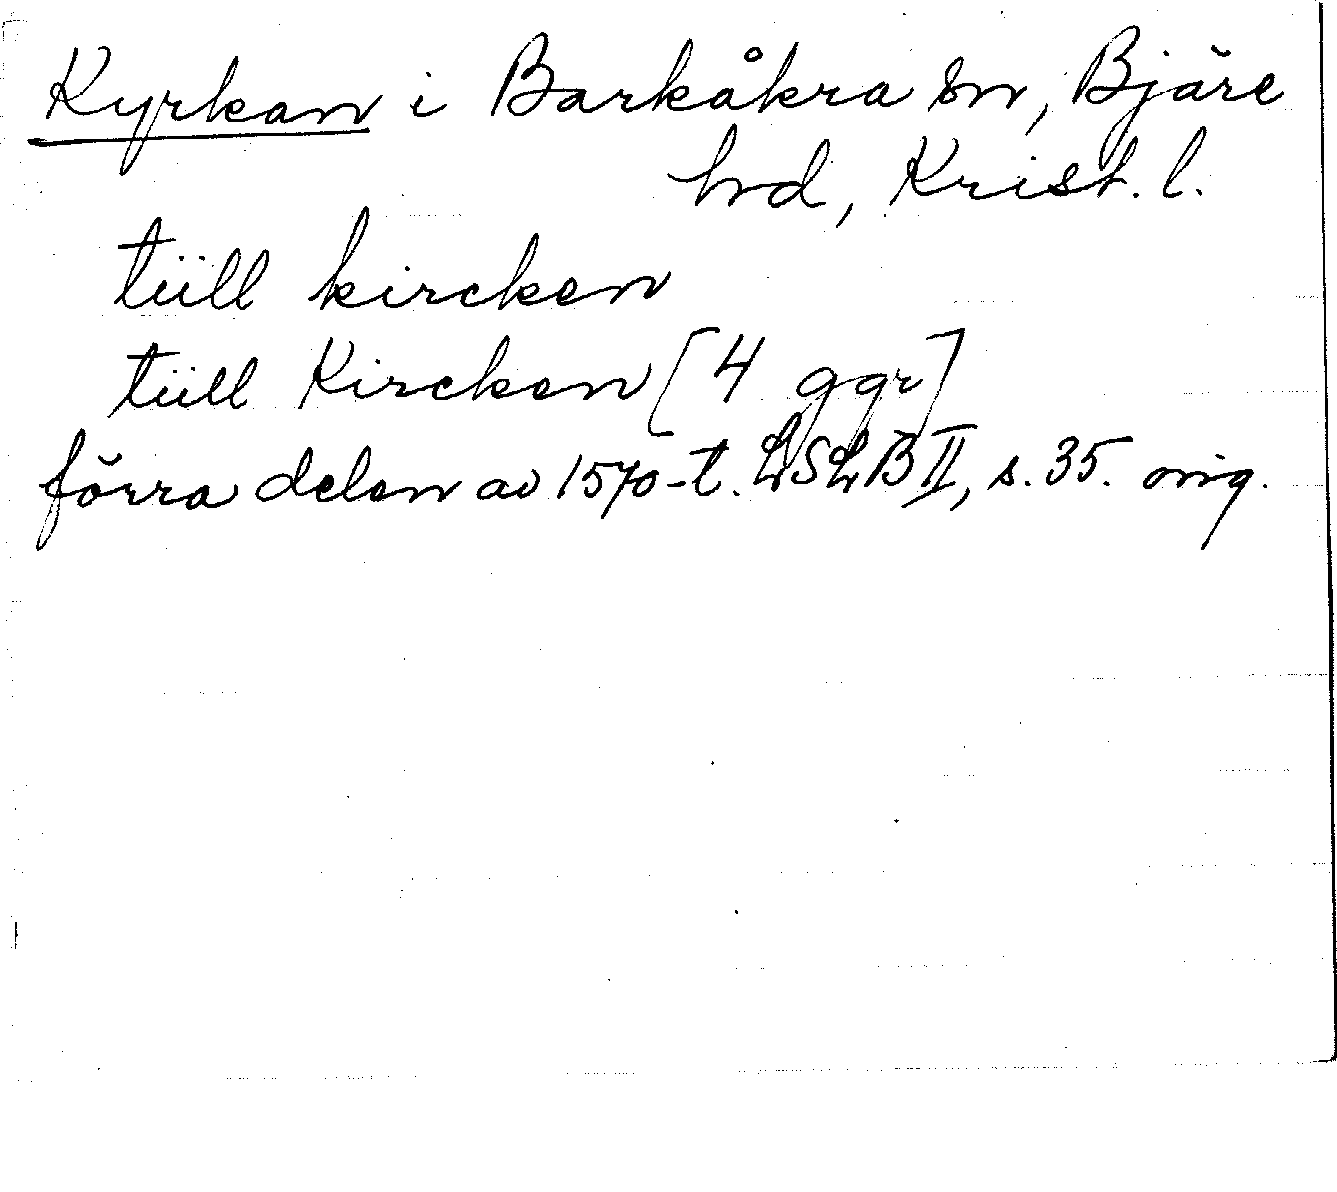 Kyrkan i Barkåkra sn, Bjäre
hrd, Krist. l.
tiill kircken
tiill Kircken [4 ggr]
förra delen av 1570-t. LSLB II, s. 35. orig.